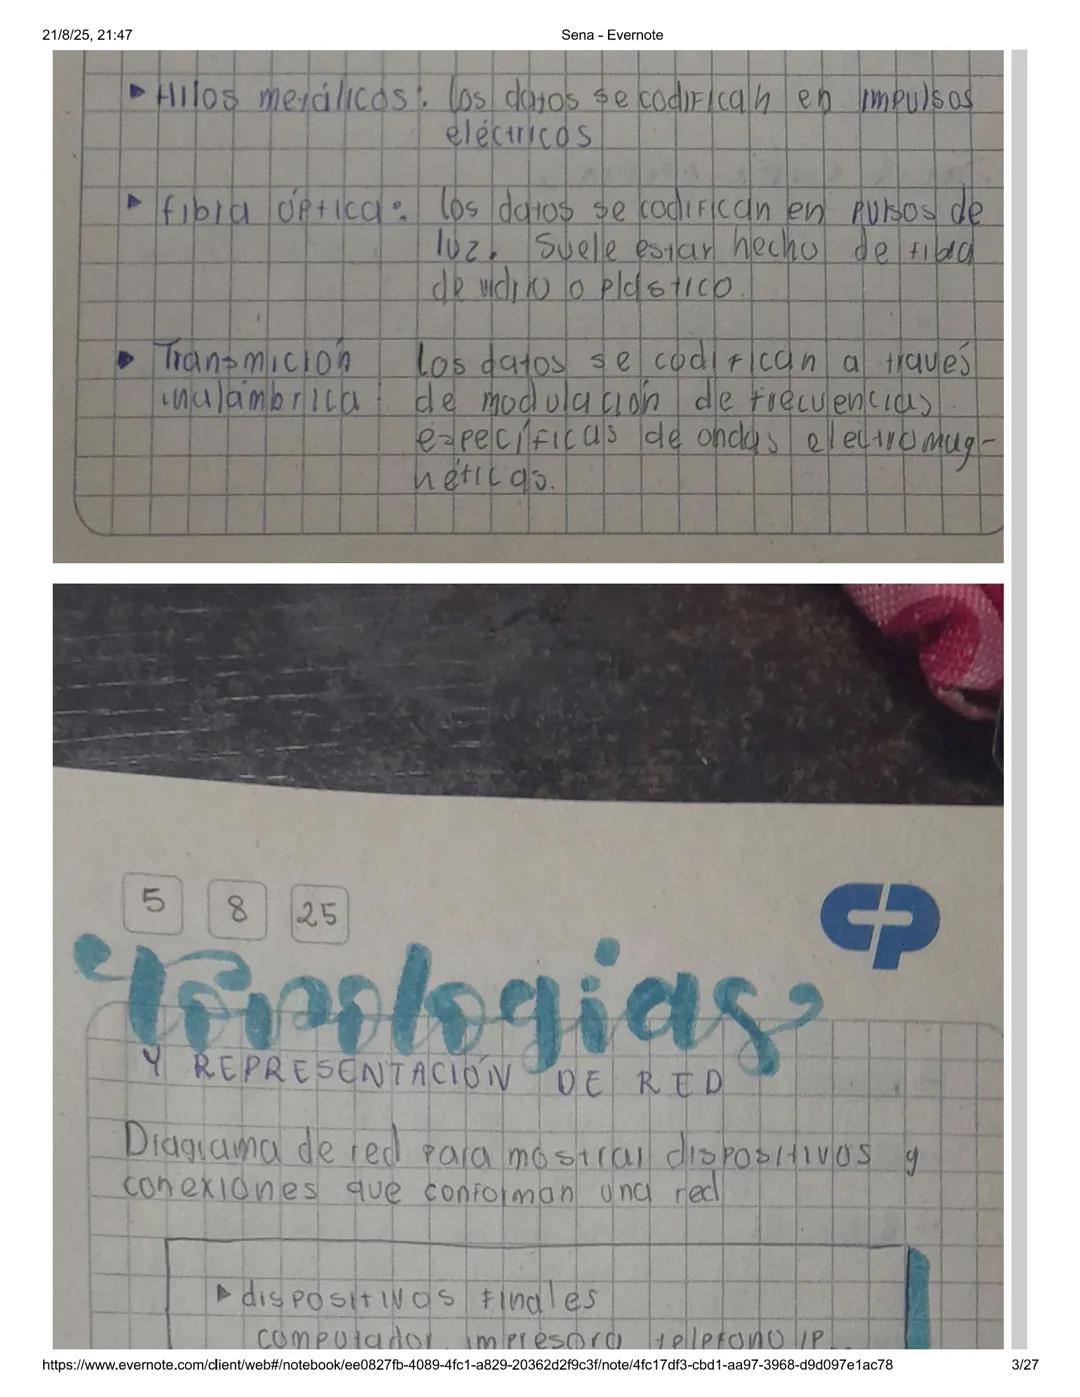 21/8/25, 21:47
Sena - Evernote
▸ Hilos metálicos: los datos se codifican en impulsos
eléctricos
▸ fibra óptica: los datos se codifican en pulsos de
luz. Suele estar hecho de fibra
de vidrio o plástico.
▸ Transmición los datos se codifican a través
inalámbrica de modulación de frecuencias
específicas de ondas electromag-
néticas.
5 8 25
Topologias
Y REPRESENTACIÓN DE RED
Diagrama de red para mostrar dispositivos y
conexiones que conforman una red
▸ dispositivos finales
computador impresora telefono IP
https://www.evernote.com/client/web#/notebook/ee0827fb-4089-4fc1-a829-20362d2f9c3f/note/4fc17df3-cbd1-aa97-3968-d9d097e1ac78
3/27